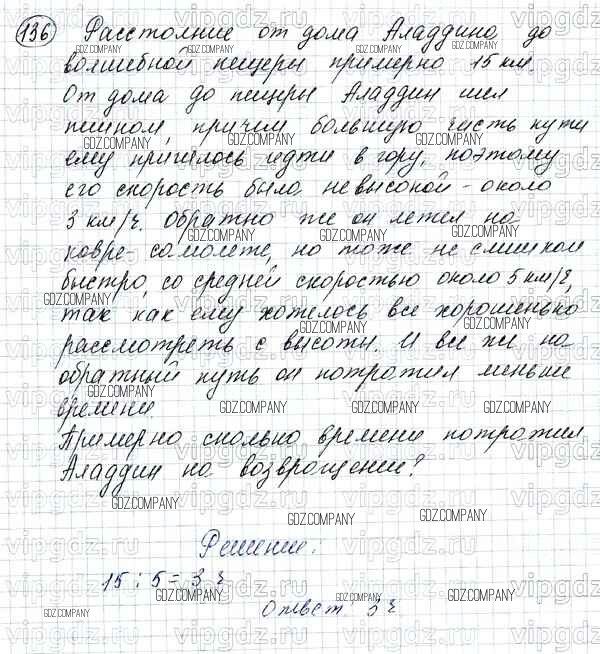 136 Расстояние от дома Аладдина до
волшебной пещеры примерно 15 км.
От дома до пещеры Аладдин шел
пешком, причем большую часть пути
ему пришлось идти в гору, поэтому
его скорость была невысокой - около
3 км/ч. Обратно же он летел на
ковре-самолете, но тоже не слишком
быстро, со средней скоростью около 5 км/ч,
так как ему хотелось все хорошенько
рассмотреть с высоты. И все же на
обратный путь он потратил меньше
времени.
Примерно сколько времени потратил
Аладдин на возвращение?
Решение:
15 : 5 = 3 ч
Ответ: 3 ч
GDZ.COMPANY
vipgdz.ru